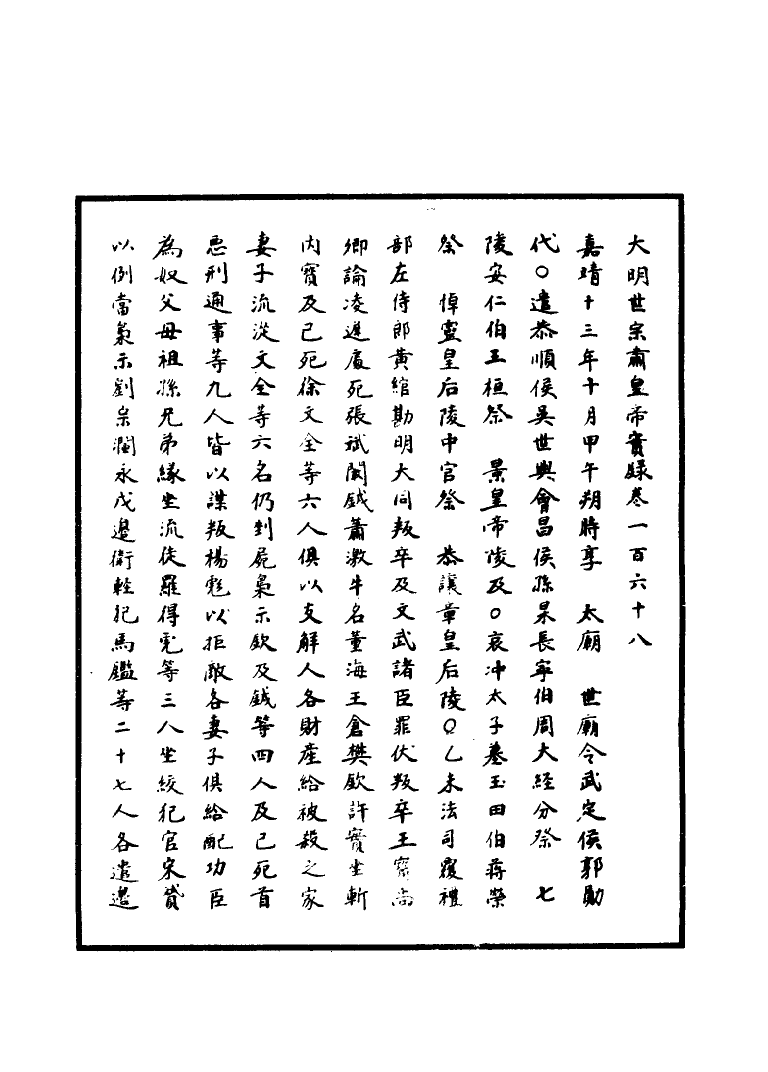 大明世宗肅皇帝實錄卷一百六十八
嘉靖十三年十月甲午朔時享　太廟　世廟令武定侯郭勛
代○遣恭順侯吳世興會昌侯孫杲長寧伯周大經分祭　七
陵安仁伯王桓祭　景皇帝陵及○哀冲太子墓玉田伯蔣榮
祭　悼靈皇后陵中官祭　恭讓章皇后陵○乙未法司覆禮
部左侍郎黃綰勘明大同叛卒及文武諸臣罪伏叛卒王寶尚
卿論凌遲處死張斌關鉞蕭漵牛名董海王倉樊欽許寶坐斬
內寶及已死徐文全等六人俱以支解人各財產給被殺之家
妻子流從文全等六名仍剉屍梟示欽及鉞等四人及已死首
惡刑通事等九人皆以謀叛楊彪以拒敵各妻子俱給配功臣
為奴父母祖孫兄弟緣坐流徒羅得兇等三人坐絞犯官宋贇
以例當梟示劉宗瀾永戍邊衛輕犯馬鑑等二十七人各遣邊